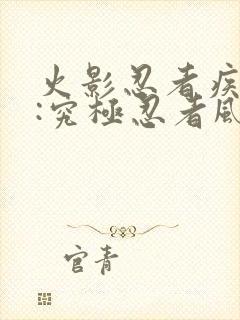 火影忍者疾
:究極忍者風
官青